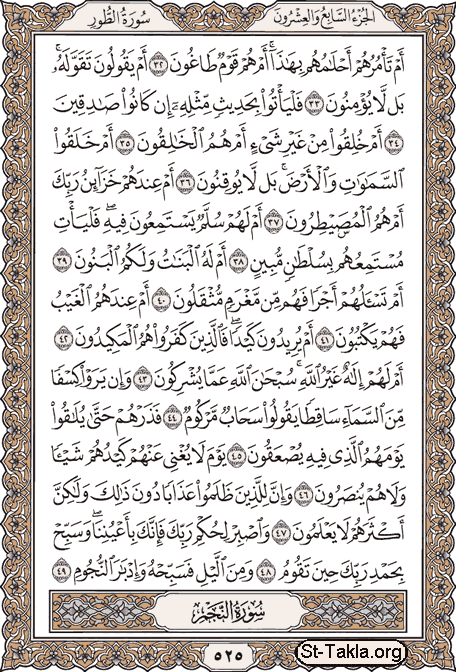 الجزء السابع والعشرون سورة الطور
أَمْ تَأْمُرُهُمْ أَحْلَٰمُهُم بِهَٰذَآ ۚ أَمْ هُمْ قَوْمٌ طَاغُونَ ٣٢ أَمْ يَقُولُونَ تَقَوَّلَهُۥ ۚ
بَل لَّا يُؤْمِنُونَ ٣٣ فَلْيَأْتُوا۟ بِحَدِيثٍ مِّثْلِهِۦٓ إِن كَانُوا۟ صَٰدِقِينَ
٣٤ أَمْ خُلِقُوا۟ مِنْ غَيْرِ شَىْءٍ أَمْ هُمُ ٱلْخَٰلِقُونَ ٣٥ أَمْ خَلَقُوا۟
ٱلسَّمَٰوَٰتِ وَٱلْأَرْضَ ۚ بَل لَّا يُوقِنُونَ ٣٦ أَمْ عِندَهُمْ خَزَآئِنُ رَبِّكَ
أَمْ هُمُ ٱلْمُصَۣيْطِرُونَ ٣٧ أَمْ لَهُمْ سُلَّمٌ يَسْتَمِعُونَ فِيهِ ۖ فَلْيَأْتِ
مُسْتَمِعُهُم بِسُلْطَٰنٍ مُّبِينٍ ٣٨ أَمْ لَهُ ٱلْبَنَٰتُ وَلَكُمُ ٱلْبَنُونَ ٣٩
أَمْ تَسْـَٔلُهُمْ أَجْرًا فَهُم مِّن مَّغْرَمٍ مُّثْقَلُونَ ٤٠ أَمْ عِندَهُمُ ٱلْغَيْبُ
فَهُمْ يَكْتُبُونَ ٤١ أَمْ يُرِيدُونَ كَيْدًا ۖ فَٱلَّذِينَ كَفَرُوا۟ هُمُ ٱلْمَكِيدُونَ ٤٢
أَمْ لَهُمْ إِلَٰهٌ غَيْرُ ٱللَّهِ ۚ سُبْحَٰنَ ٱللَّهِ عَمَّا يُشْرِكُونَ ٤٣ وَإِن يَرَوْا۟ كِسْفًا
مِّنَ ٱلسَّمَآءِ سَاقِطًا يَقُولُوا۟ سَحَابٌ مَّرْكُومٌ ٤٤ فَذَرْهُمْ حَتَّىٰ يُلَٰقُوا۟
يَوْمَهُمُ ٱلَّذِى فِيهِ يُصْعَقُونَ ٤٥ يَوْمَ لَا يُغْنِى عَنْهُمْ كَيْدُهُمْ شَيْـًٔا
وَلَا هُمْ يُنصَرُونَ ٤٦ وَإِنَّ لِلَّذِينَ ظَلَمُوا۟ عَذَابًا دُونَ ذَٰلِكَ وَلَٰكِنَّ
أَكْثَرَهُمْ لَا يَعْلَمُونَ ٤٧ وَٱصْبِرْ لِحُكْمِ رَبِّكَ فَإِنَّكَ بِأَعْيُنِنَا ۖ وَسَبِّحْ
بِحَمْدِ رَبِّكَ حِينَ تَقُومُ ٤٨ وَمِنَ ٱلَّيْلِ فَسَبِّحْهُ وَإِدْبَٰرَ ٱلنُّجُومِ ٤٩
سُورَةُ النَّجْمِ
٥٢٥
St-Takla.org